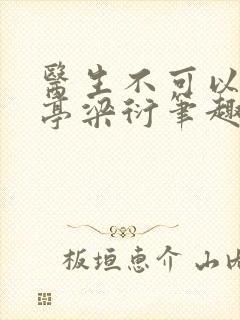 醫生不可以
亭梁衍筆趣
板垣恵介 山内